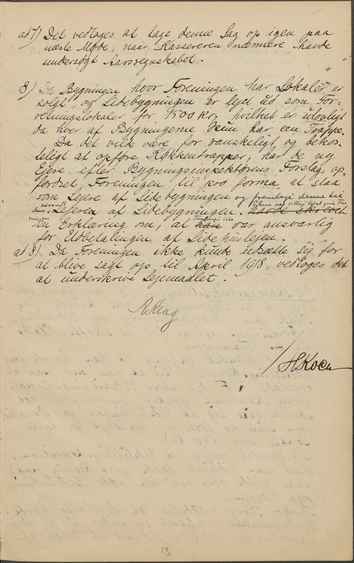 at 7) Det vedtages at tage denne Sag op igen paa
næste Møde, naar Kassereren nærmere havde
undersøgt Aarsregnskabet.
8) Da Bygningen hvor Foreningen har Lokaler er
solgt og Sidebygningen er lejet ud som For-
retningslokaler for 1500 Kr, hvilket er ulovligt
da hver af Bygningerne kun har een Trappe.
Da det vilde være for vanskeligt, og bekos-
teligt at opføre Køkkentrapper, har de ny
Ejere efter Bygningsinspektørens Forslag op-
fordret Foreningen til pro forma at staa
som Lejere af Sidebygningen og
Lejeren af Sidebygningen.
en Erklæring om, at han var ansvarlig
for Udbetalingen af Sidehuslejen.
at 8) Da Foreningen ikke kunde udsætte sig for
at blive sagt op til April 1918, vedtoges det
at underskrive Lejemaalet.
/ HKoch